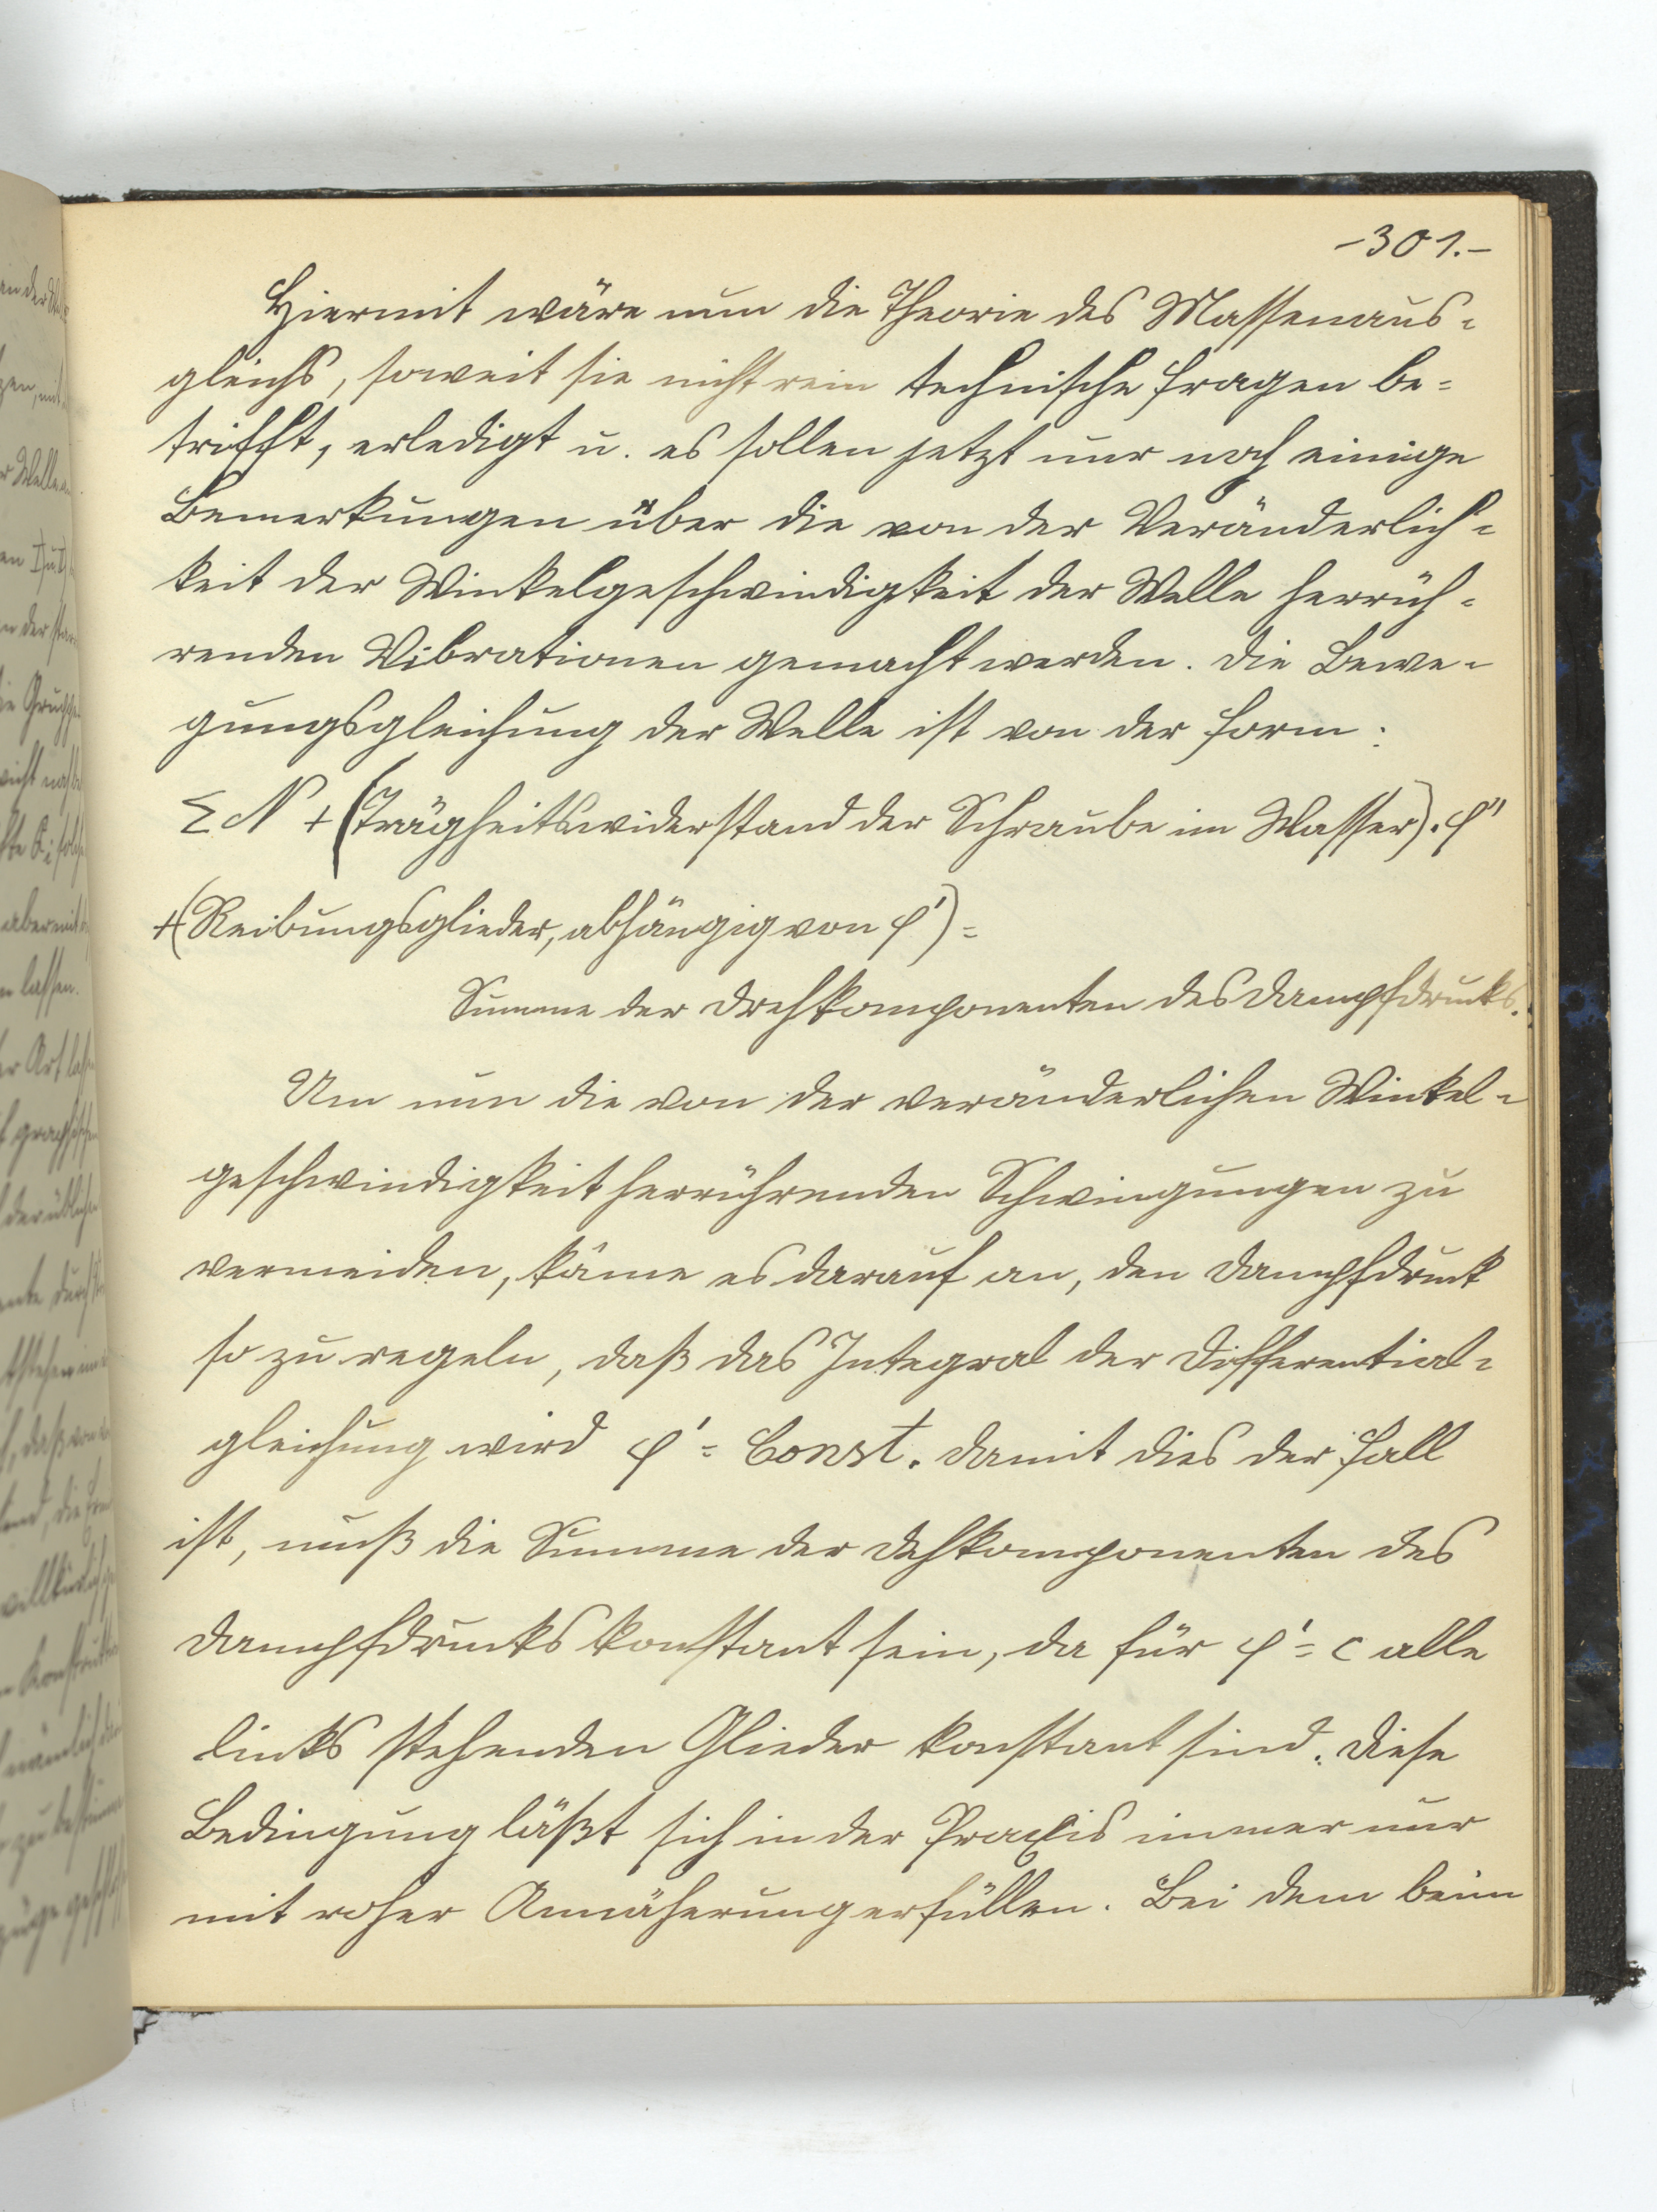 -301.-
Hiermit wäre nun die Theorie des Massenaus-
gleichs, soweit sie nicht rein technische Fragen be-
trifft, erledigt u. es sollen jetzt nur noch einige
Bemerkungen über die von der Veränderlich-
keit der Winkelgeschwindigkeit der Welle herrüh-
renden Vibrationen gemacht werden. Die Bewe-
gungsgleichung der Welle ist von der Form:
Σ N + (Trägheitswiderstand der Schraube im Wasser). φ''
+ (Reibungsglieder, abhängig von φ') =
Summe der Drehkomponenten des Dampfdrucks.
Um nun die von der veränderlichen Winkel-
geschwindigkeit herrührenden Schwingungen zu
vermeiden, käme es darauf an, den Dampfdruck
so zu regeln, daß das Integral der Differential-
gleichung wird φ' = Const. Damit dies der Fall
ist, muß die Summe der Dehkomponenten des
Dampfdrucks konstant sein, da für φ' = c alle
links stehenden Glieder konstant sind. Diese
Bedingung läßt sich in der Praxis immer nur
mit roher Annäherung erfüllen. Bei dem beim